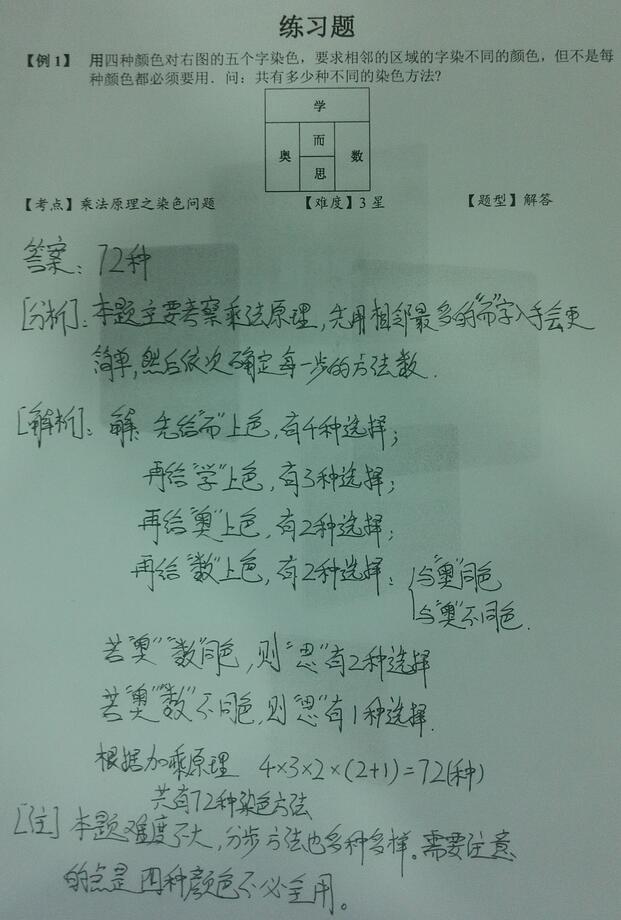 练习题
【例1】 用四种颜色对右图的五个字染色，要求相邻的区域的字染不同的颜色，但不是每
种颜色都必须要用．问：共有多少种不同的染色方法？
学
奥 而 数
思
【考点】乘法原理之染色问题 【难度】3星 【题型】解答
答案：72种
[分析]：本题主要考察乘法原理，先用相邻最多的“而”字入手会更
简单，然后依次确定每一步的方法数．
[解析]：解：先给“而”上色，有4种选择；
再给“学”上色，有3种选择；
再给“奥”上色，有2种选择；
再给“数”上色，有2种选择：{与“奥”同色
与“奥”不同色．
若“奥”“数”同色，则“思”有2种选择
若“奥”“数”不同色，则“思”有1种选择．
根据加乘原理 4×3×2×(2+1)=72(种)
共有72种染色方法
[注] 本题难度不大，分步方法也多种多样。需要注意
的点是四种颜色不必全用。